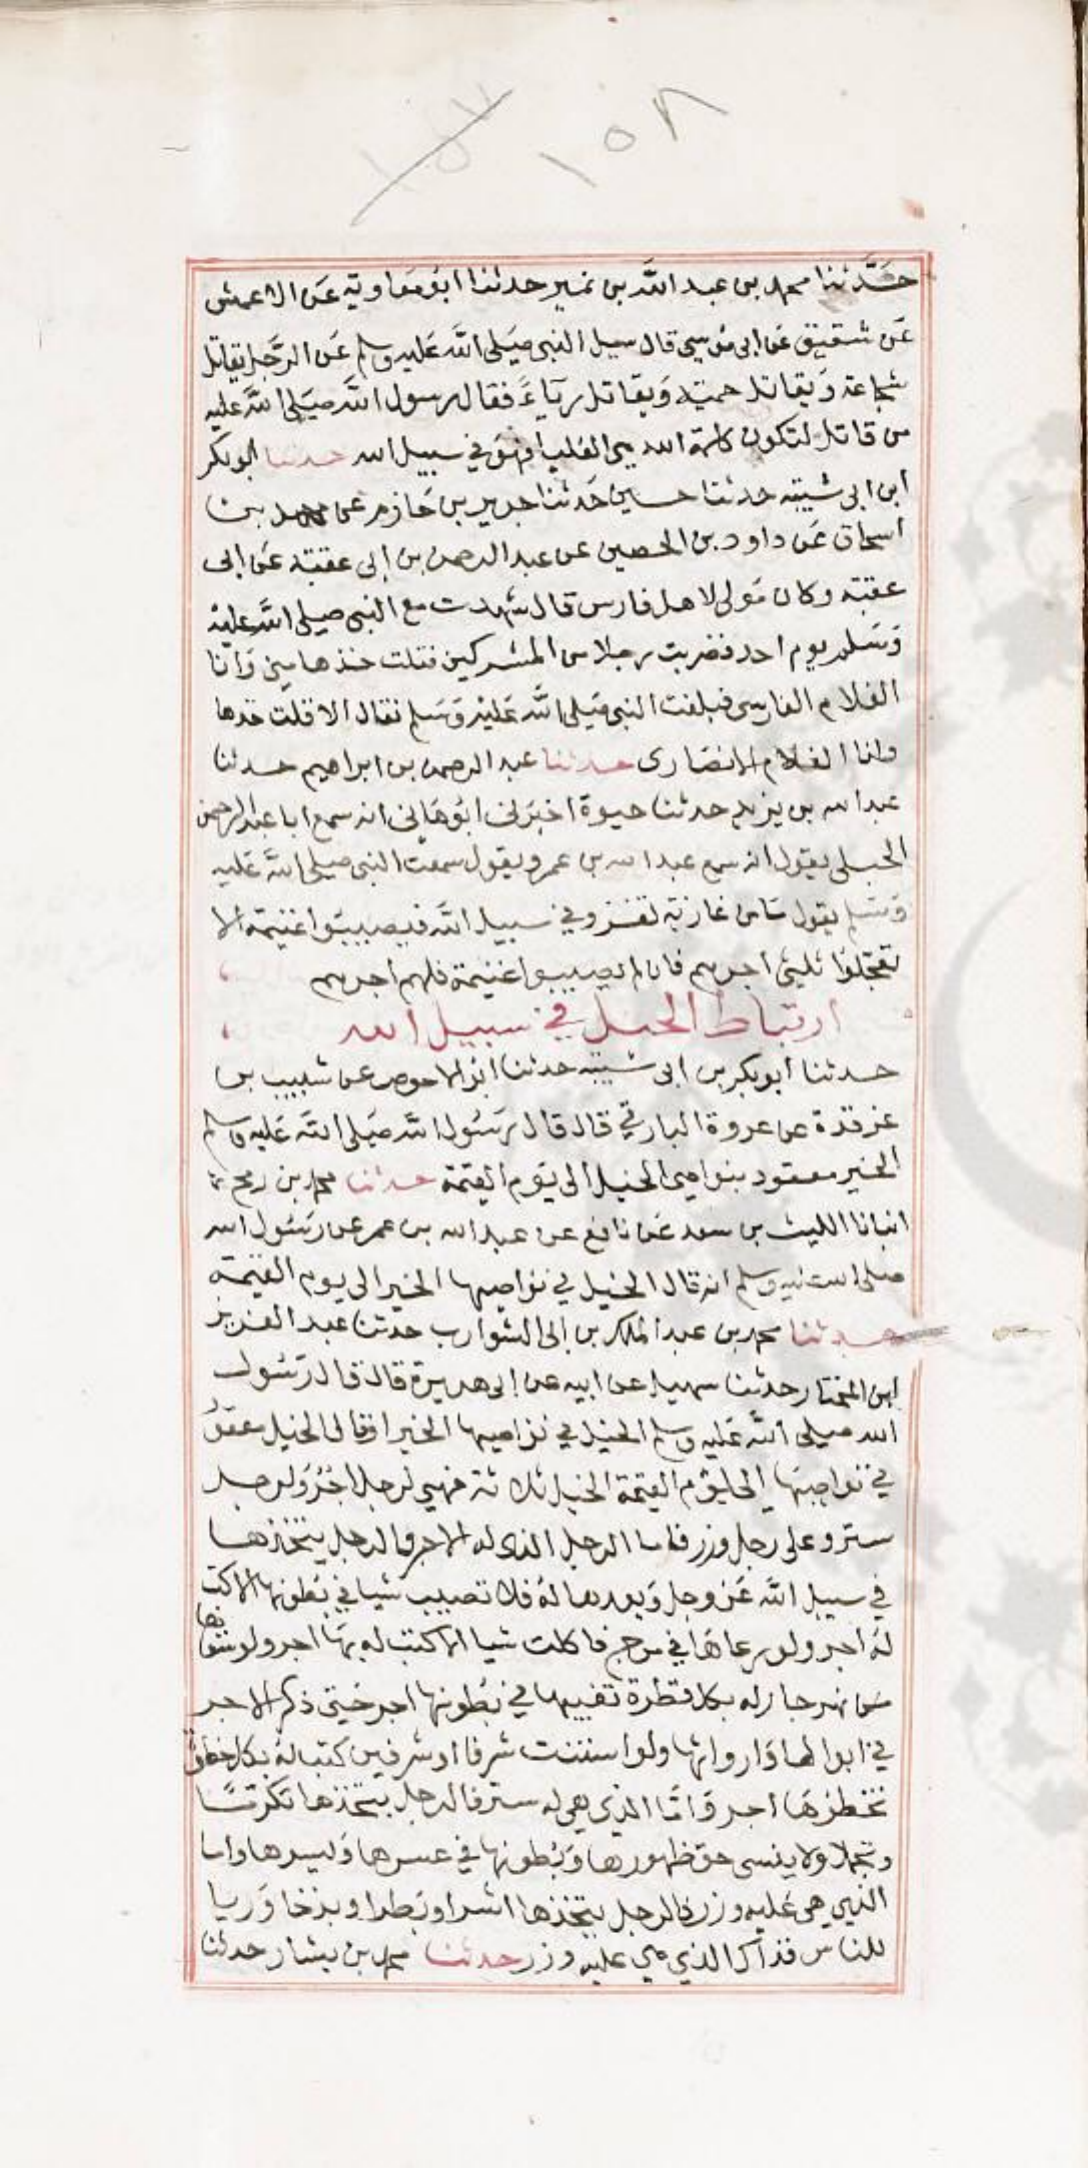 ١٥٨
حدثنا محمد بن عبد الله بن نمير حدثنا ابو معاوية عن الاعمش
عن شقيق عن ابي موسى قال سيل النبي صلى الله عليه وسلم عن الرجل يقاتل
شجاعة ويقاتل حمية ويقاتل رياء فقال رسول الله صلى الله عليه
من قاتل لتكون كلمة الله هي العليا فهو في سبيل الله حدثنا ابو بكر
ابن ابي شيبة حدثنا حسين حدثنا جرير بن حازم عن محمد بن
اسحاق عن داود بن الحصين عن عبد الرحمن بن ابي عقبة عن ابي
عقبة وكان مولى لاهل فارس قال شهدت مع النبي صلى الله عليه
وسلم يوم احد فضربت رجلا من المشركين فقلت خذها مني وانا
الغلام الفارسي فبلغت النبي صلى الله عليه وسلم فقال الا قلت خذها
وانا الغلام الانصارى حدثنا عبد الرحمن بن ابراهيم حدثنا
عبد الله بن يزيد حدثنا حيوة اخبرني ابو هاني انه سمع ابا عبد الرحمن
الحبلي يقول انه سمع عبد الله بن عمرو يقول سمعت النبي صلى الله عليه
وسلم يقول ما من غازية تغزو في سبيل الله فيصيبوا غنيمة الا
تعجلوا ثلثي اجرهم فان لم يصيبوا غنيمة فلهم اجرهم
ارتباط الخيل في سبيل الله
حدثنا ابو بكر بن ابي شيبة حدثنا ابو الاحوص عن شبيب بن
غرقدة عن عروة البارقي قال قال رسول الله صلى الله عليه وسلم
الخير معقود بنواصي الخيل الى يوم القيمة حدثنا محمد بن رمح
انبانا الليث بن سعد عن نافع عن عبد الله بن عمر عن رسول الله
صلى الله عليه وسلم انه قال الخيل في نواصيها الخير الى يوم القيمة
حدثنا محمد بن عبد الملك بن ابي الشوارب حدثنا عبد العزيز
ابن المختار حدثنا سهيل عن ابيه عن ابي هريرة قال قال رسول
الله صلى الله عليه وسلم الخيل في نواصيها الخير او قال الخيل معقود
في نواصيها الى يوم القيمة الخيل ثلاثة فهي لرجل اجر ولرجل
ستر وعلى رجل وزر فاما الرجل الذى له الاجر فالرجل يتخذها
في سبيل الله عز وجل ويعدها له فلا تصيب شيا في بطونها الا كتب
له اجر ولو رعاها في مرج فا كلت شيا الا كتب له بها اجر ولو سقاها
من نهر جار له بكل قطرة تغيبها في بطونها اجر حتى ذكر الاجر
في ابوالها واروانها ولو استنت شرفا او شرفين كتب له بكل خطوة
تخطوها اجر واما الذي هي له ستر فالرجل يتخذها تكرما
وتجملا ولا ينسى حق ظهورها وبطونها في عسرها ويسرها واما
الذي هي عليه وزر فالرجل يتخذها اشرا وبطرا وبذخا وريا
للناس فذاك الذي هي عليه وزر حدثنا محمد بن بشار حدثنا